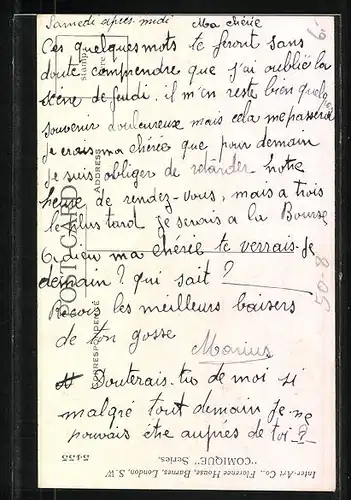 Samedi après-midi Ma chérie
Ces quelques mots te feront sans
doute comprendre que j'ai oublié la
scène de jeudi. il m'en reste bien quelq
souvenir douleureux mais cela me passera
je crois ma chérie que pour demain
je suis obliger de retarder notre
heure de rendez-vous, mais a trois
le plus tard je serais a la Bourse
Adieu ma chérie te verrais-je
demain? qui sait?
Reçois les meilleurs baisers
de ton gosse
Marius
Douterais-tu de moi si
malgré tout demain je ne
pouvais être auprès de toi?
POST CARD
CORRESPONDENCE
ADDRESS
Inter-Art Co., Florence House, Barnes, London, S.W.
"COMIQUE" Series.
5455
50-8